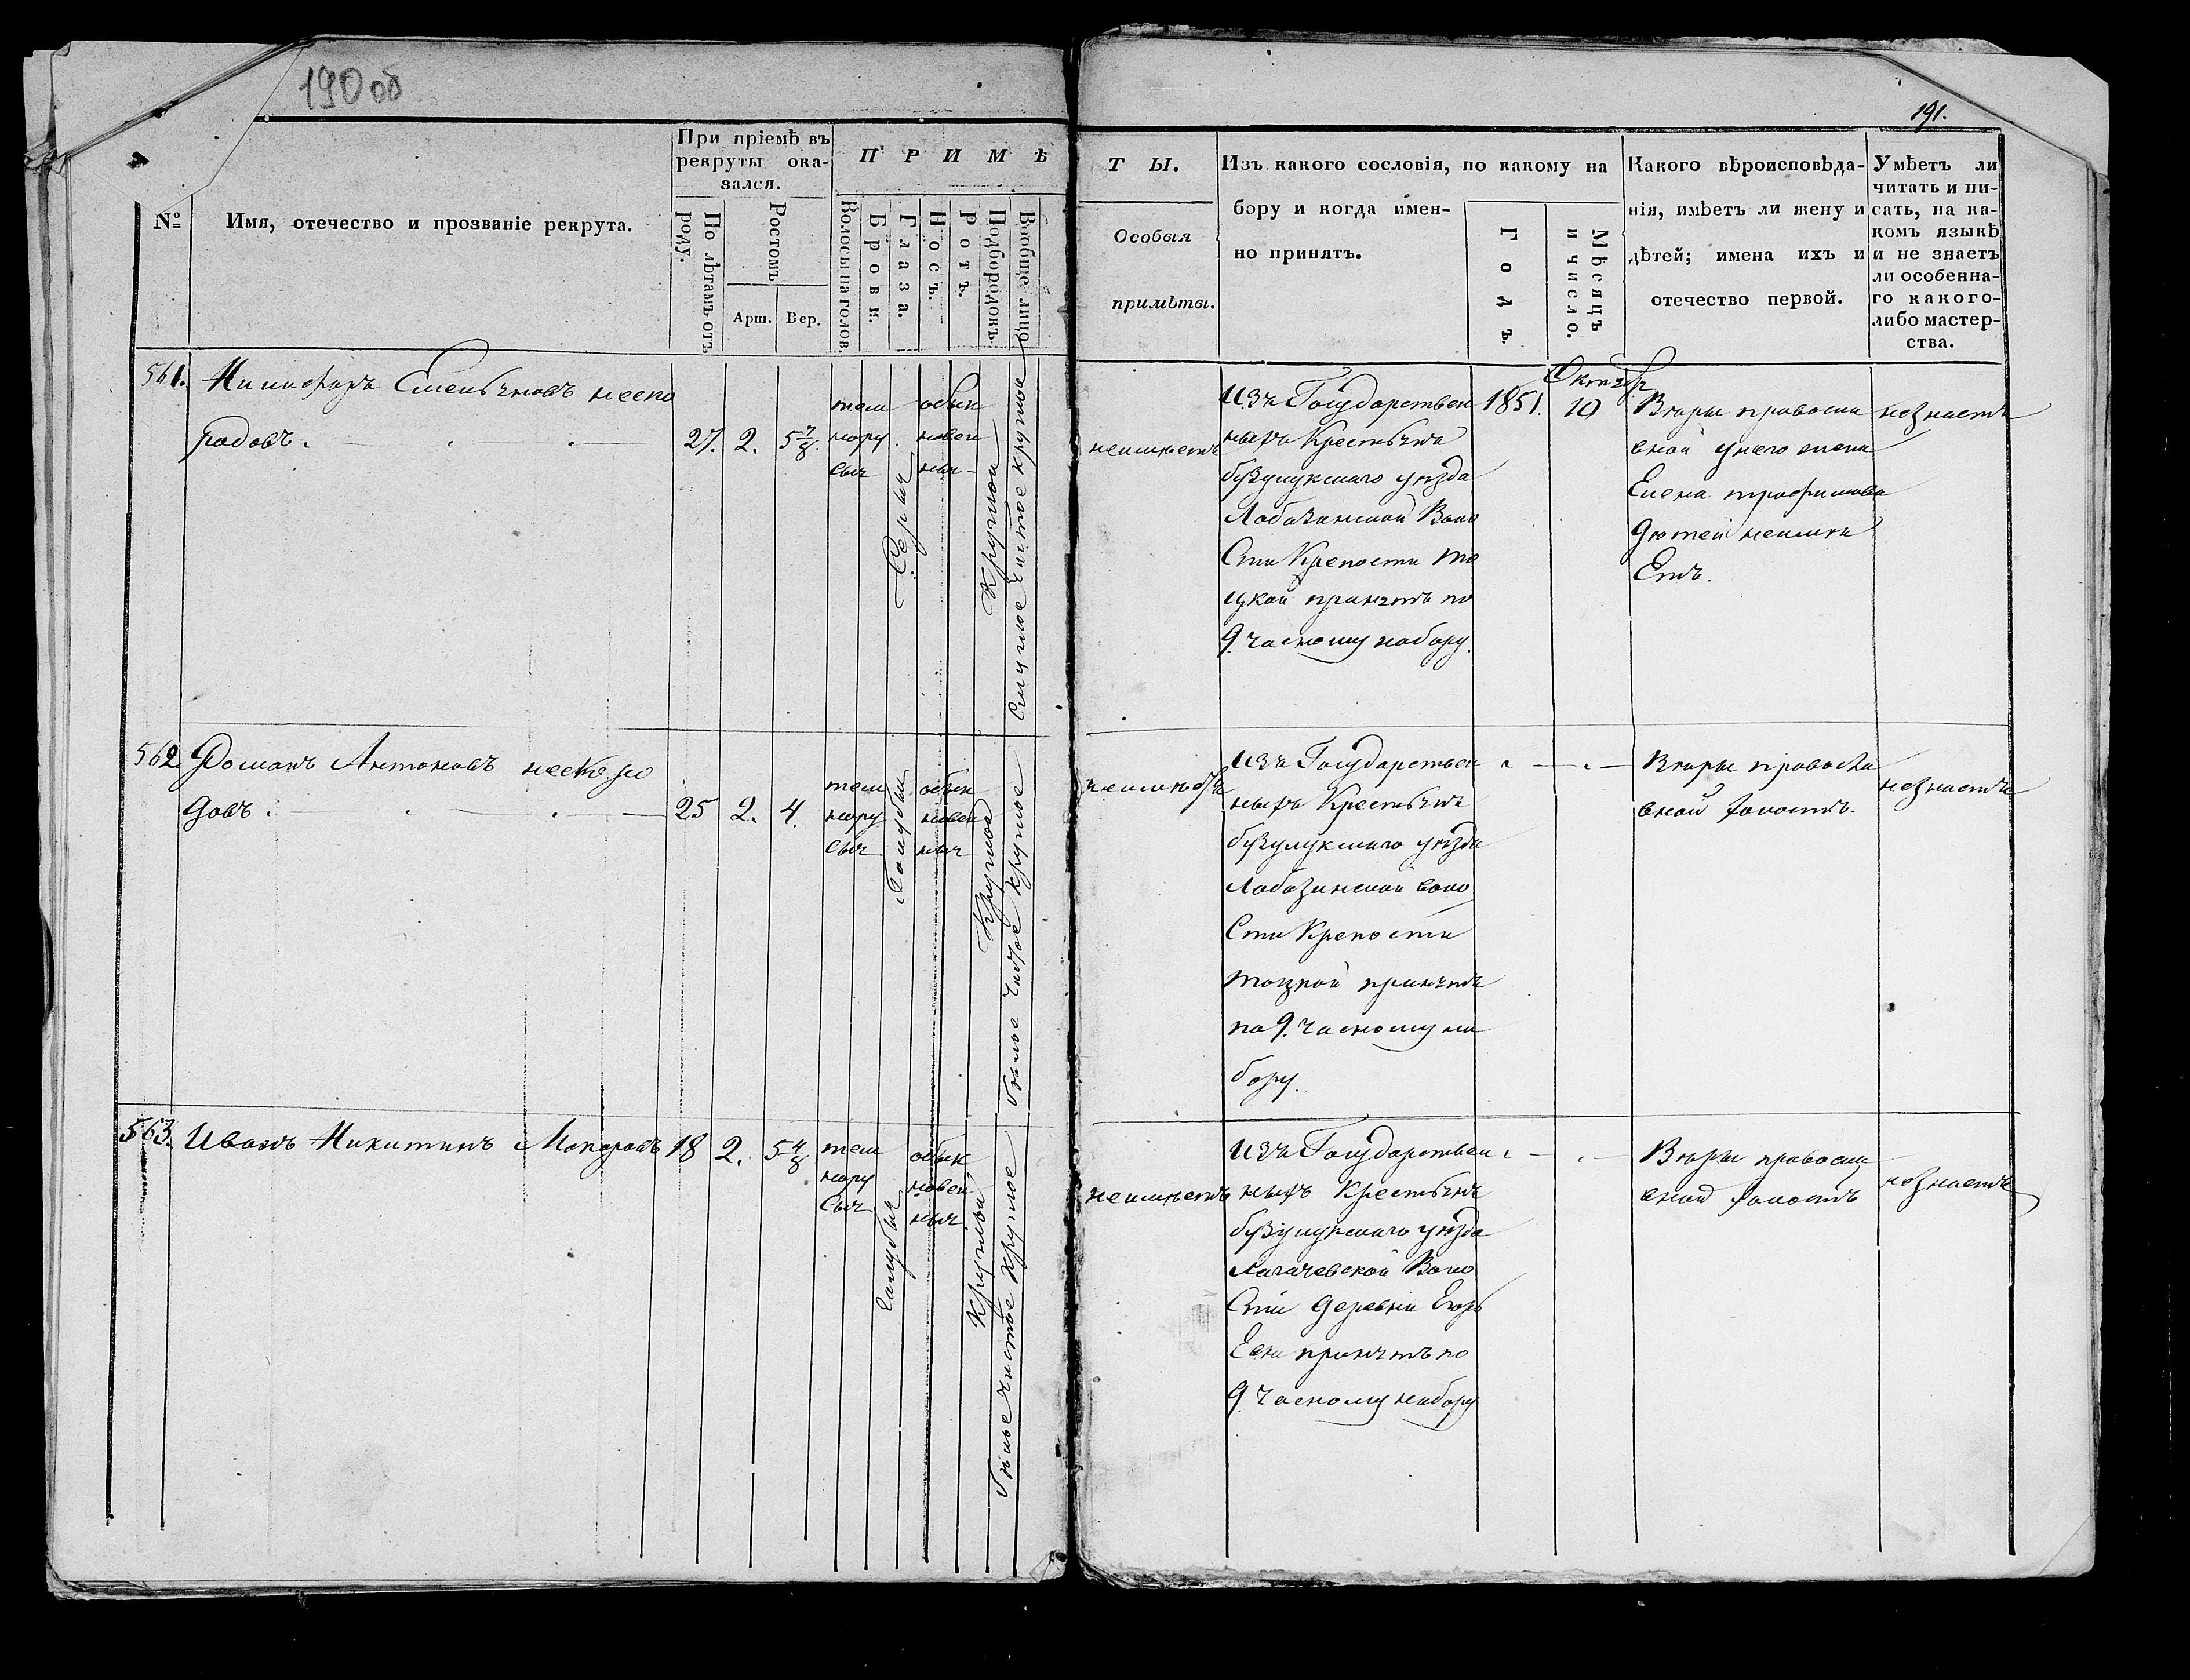 190 об
191.
При пріемѣ въ
рекруты ока-
зался.
П Р И М Ѣ
Т Ы.
№
Имя, отечество и прозваніе рекрута.
По лѣтамъ отъ
роду.
Ростомъ
Арш.
Вер.
Волосы на голов.
Брови.
Глаза.
Носъ.
Ротъ.
Подбородокъ.
Вообще лицо
Особыя
примѣты.
Изъ какого сословія, по какому на
бору и когда имен-
но принятъ.
Годъ.
Мѣсяцъ
и число.
Какого вѣроисповѣда-
нія, имѣетъ ли жену и
дѣтей; имена ихъ и
отечество первой.
Умѣетъ ли
читать и пи-
сать, на ка-
комъ языкѣ
и не знаетъ
ли особенна-
го какого-
либо мастер-
ства.
561. Никифоръ Емельяновъ
27. 2. 5 7/8
тем
нору
сыя
Серыя
обык
новен
ныя
Круглой
Смуглое чистое круглое
неимѣетъ
изъ Государствен
ныхъ Крестьянъ
бузулукскаго уѣзда
Лобазинской Воло
Сти Крепости То
цкой принятъ по
9. частному набору.
1851.
Октября
10
Вѣры правосла
вной у него жена
Елена трофимова
Дѣтей неимѣ
Етъ.
незнаетъ
562 Романъ Антоновъ
довъ.
25 2. 4.
тем
нору
сыя
Голубыя
обык
новен
ныя
Круглой
белое чистое круглое
изъ Государствен
ныхъ Крестьянъ
бузулукскаго уѣзда
Лобазинской воло
Сти Крепости
тоцкой принятъ
по 9. частному на
бору.
Вѣры правосла
вной холостъ.
незнаетъ
563. Иванъ Никитинъ
18 2. 5 4/8
тем
нору
Сыя
Голубыя
обык
новен
ныя
Круглой
белое чистое круглое
неимѣетъ
изъ Государствен
ныхъ Крестьянъ
бузулукскаго уѣзда
Воло
Сти деревни Егорь
Евки принятъ по
9. частному набору
Вѣры правосла
вной холостъ
незнаетъ